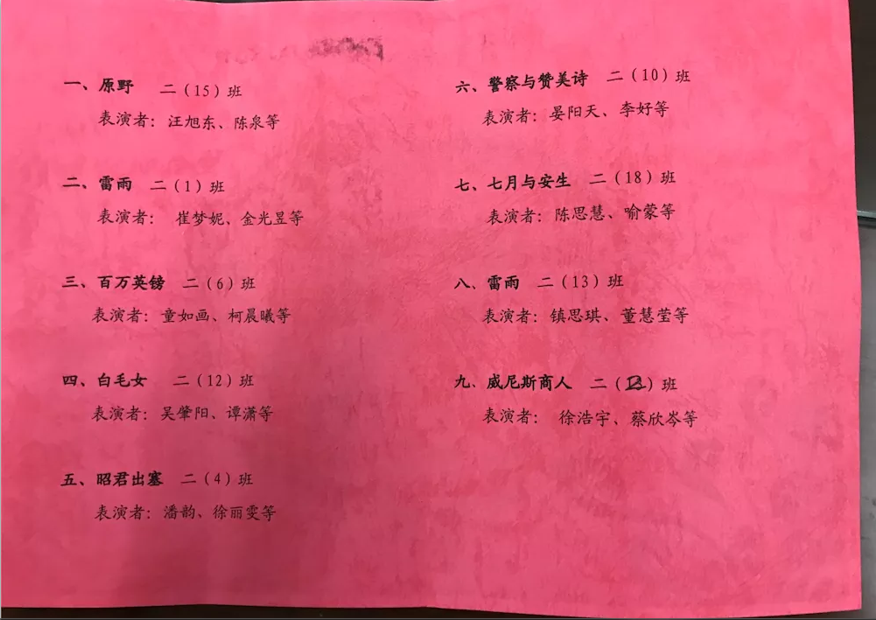 一、原野 二（15）班
表演者：汪旭东、陈泉等
二、雷雨 二（1）班
表演者：崔梦妮、金光昱等
三、百万英镑 二（6）班
表演者：童如画、柯晨曦等
四、白毛女 二（12）班
表演者：吴肇阳、谭潇等
五、昭君出塞 二（4）班
表演者：潘韵、徐丽雯等
六、警察与赞美诗 二（10）班
表演者：晏阳天、李好等
七、七月与安生 二（18）班
表演者：陈思慧、喻蒙等
八、雷雨 二（13）班
表演者：镇思琪、董慧莹等
九、威尼斯商人 二（）班
表演者：徐浩宇、蔡欣岑等